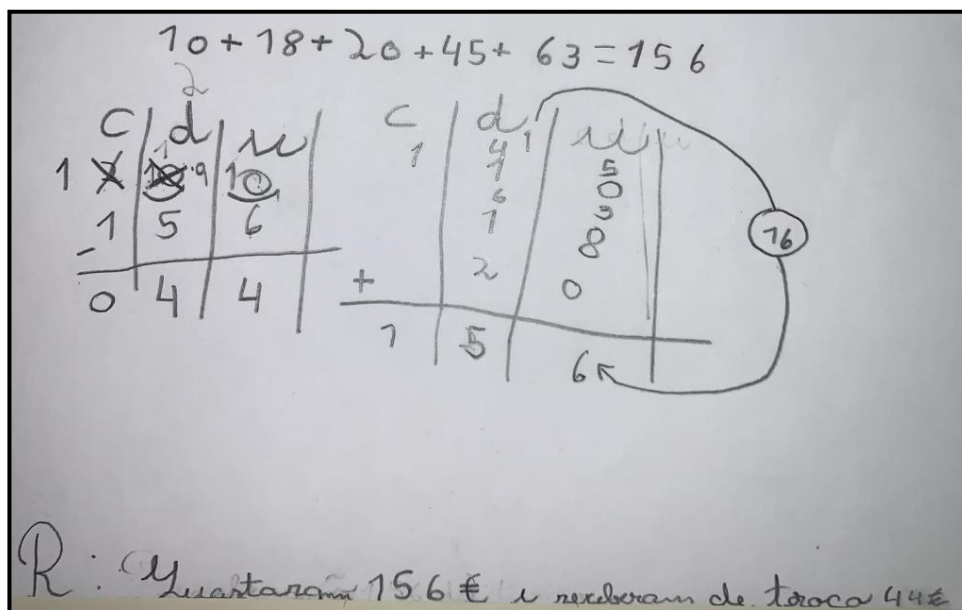 10+18+20+45+63=156
2
c d u
1 2 10 9 10
- 1 5 6
0 4 4
c d u
1 4 1 5
1 0
6 3
1 8
+ 2 0
1 5 6
16
R: Guastaram 156€ e receberam de troca 44€